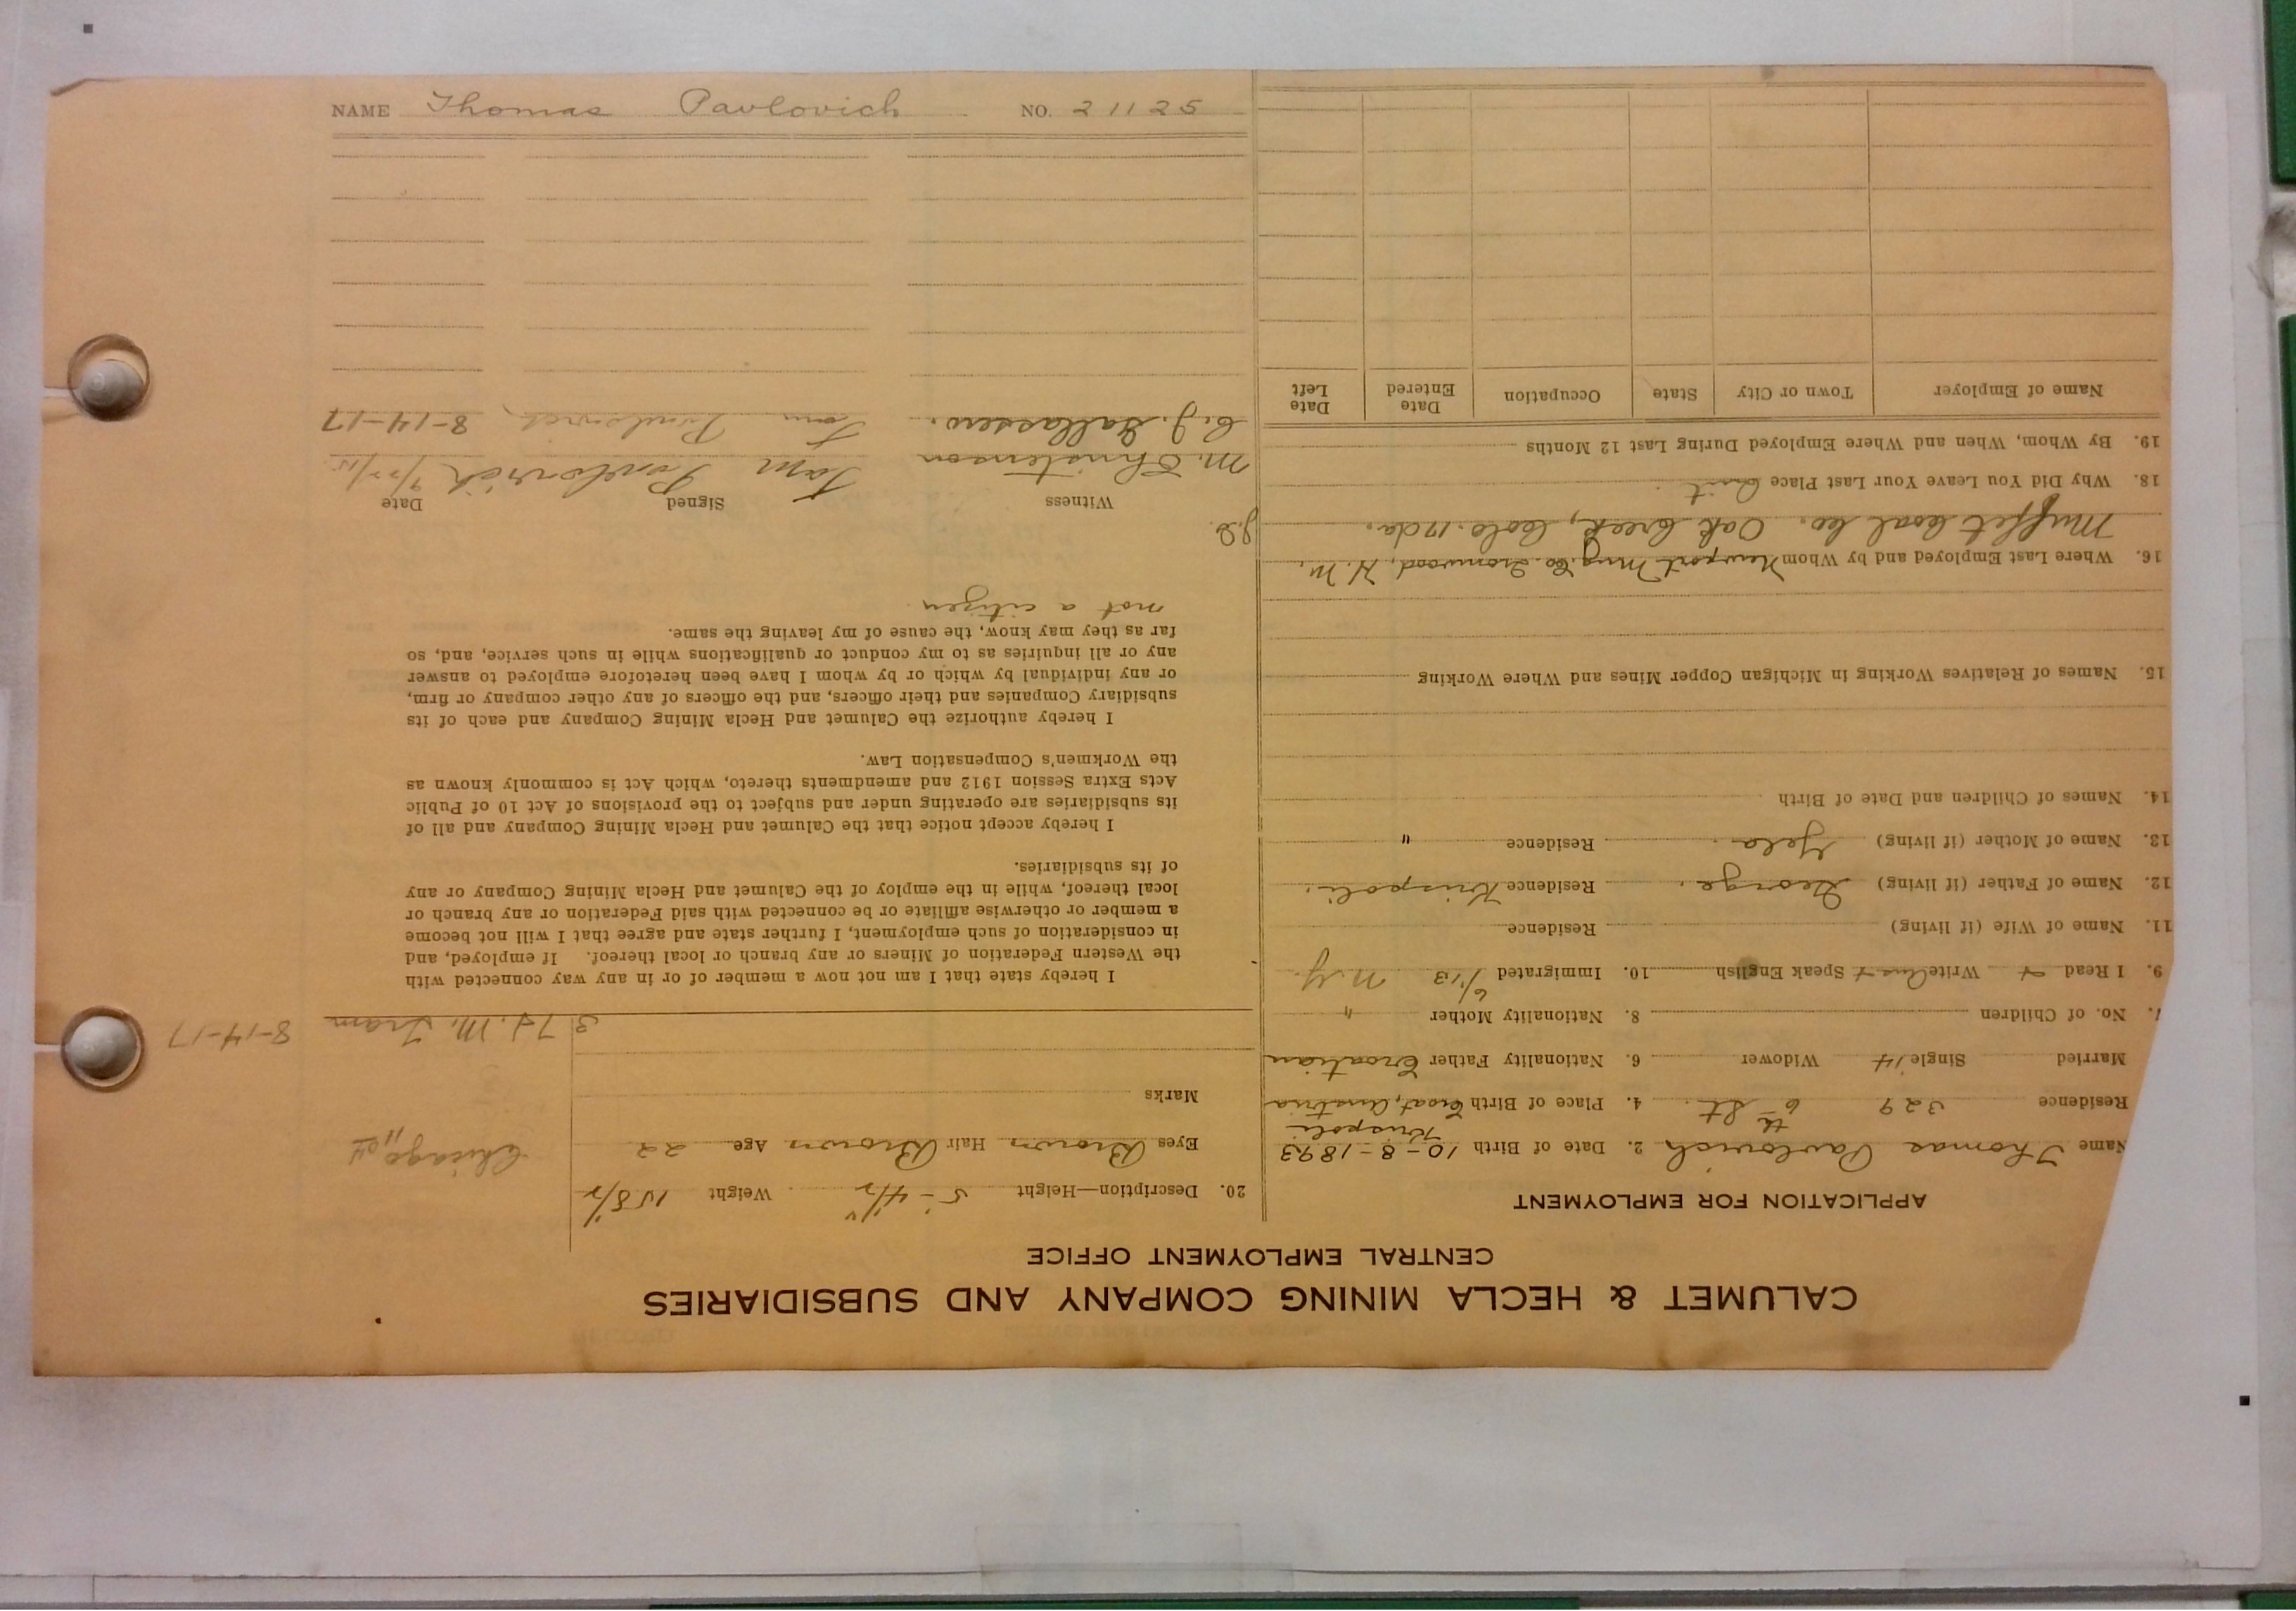 NAME Thomas Pavlovich NO. 21125
CALUMET & HECLA MINING COMPANY AND SUBSIDIARIES
CENTRAL EMPLOYMENT OFFICE
APPLICATION FOR EMPLOYMENT
Name Thomas Pavlovich 2. Date of Birth 10-8-1893
Krispoli
Residence 329 6th St. 4. Place of Birth Croat, Austria
Married Single 14 Widower 6. Nationality Father Croatian
7. No. of Children 8. Nationality Mother "
9. I Read Write Speak English 10. Immigrated 6/13 N.Y.
11. Name of Wife (if living) Residence
12. Name of Father (if living) George. Residence Krispoli.
13. Name of Mother (if living) Yela. Residence "
14. Names of Children and Date of Birth
15. Names of Relatives Working in Michigan Copper Mines and Where Working
16. Where Last Employed and by Whom Newport Mng. Co. Ironwood,
Muffet Coal Co. Oak Creek, Colo. 17 da.
18. Why Did You Leave Your Last Place Quit
19. By Whom, When and Where Employed During Last 12 Months
Name of Employer Town or City State Occupation Date Entered Date Left
20. Description—Height 5-4 1/2 Weight 158 1/2
Eyes Brown Hair Brown Age 22
Chicago
Marks
37 H. M. Tram 8-14-17
I hereby state that I am not now a member of or in any way connected with
the Western Federation of Miners or any branch or local thereof. If employed, and
in consideration of such employment, I further state and agree that I will not become
a member or otherwise affiliate or be connected with said Federation or any branch or
local thereof, while in the employ of the Calumet and Hecla Mining Company or any
of its subsidiaries.
I hereby accept notice that the Calumet and Hecla Mining Company and all of
its subsidiaries are operating under and subject to the provisions of Act 10 of Public
Acts Extra Session 1912 and amendments thereto, which Act is commonly known as
the Workmen's Compensation Law.
I hereby authorize the Calumet and Hecla Mining Company and each of its
subsidiary Companies and their officers, and the officers of any other company or firm,
or any individual by which or by whom I have been heretofore employed to answer
any or all inquiries as to my conduct or qualifications while in such service, and, so
far as they may know, the cause of my leaving the same.
not a citizen
Witness Signed Date
M. Christenson Tom Pavlovich
C. J. Gallassero. Tom Pavlovich 8-14-17